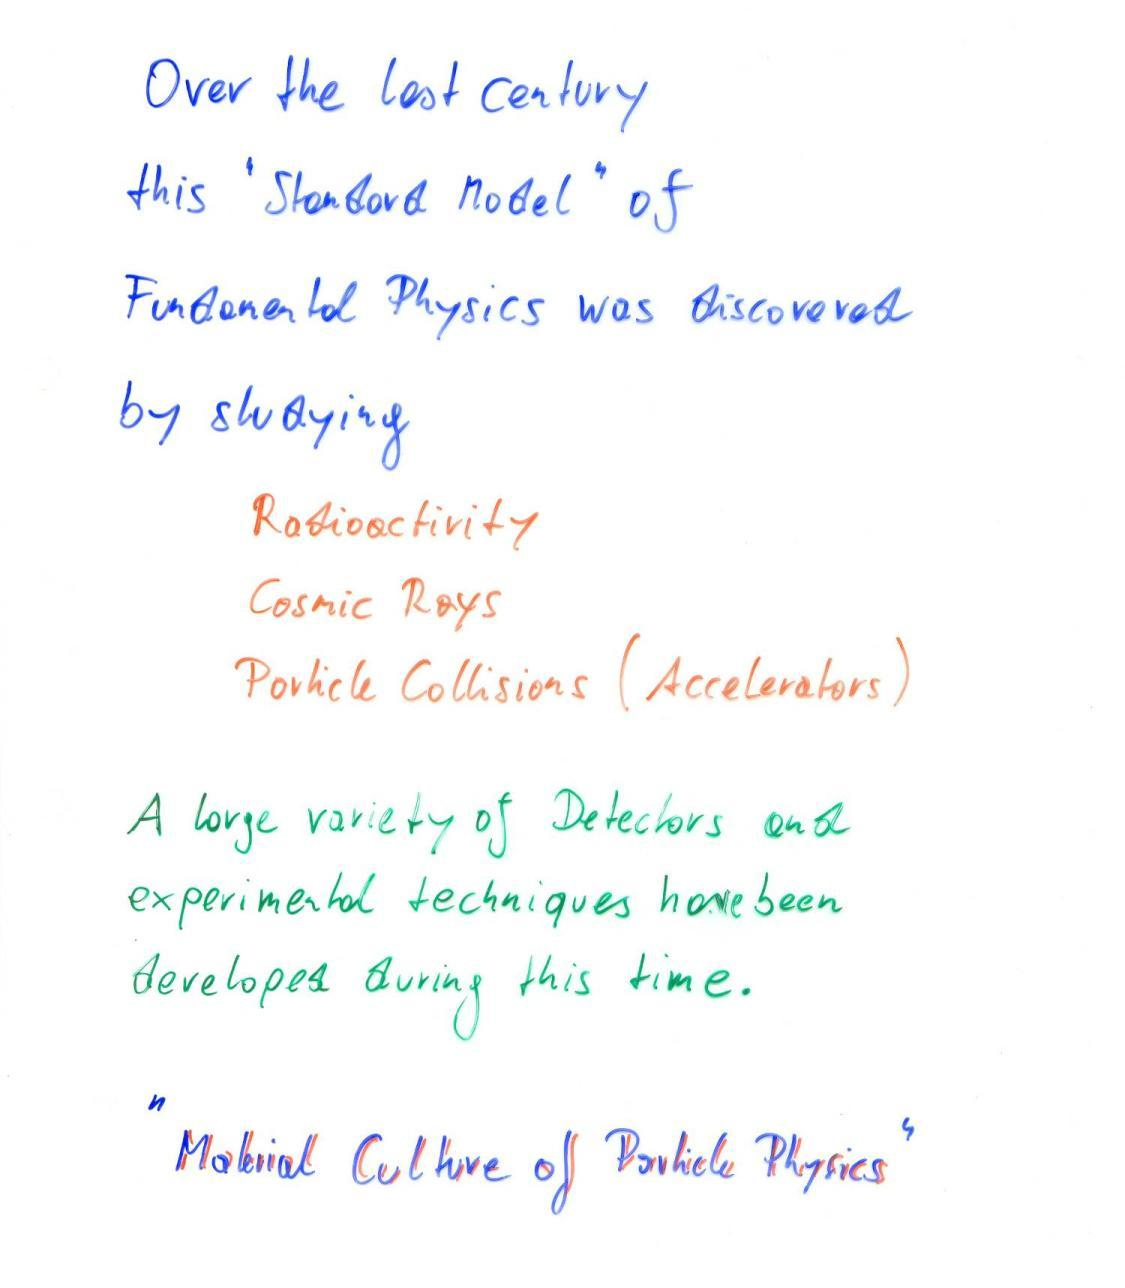 Over the last century
this "Standard Model" of
Fundamental Physics was discovered
by studying
Radioactivity
Cosmic Rays
Particle Collisions (Accelerators)
A large variety of Detectors and
experimental techniques have been
developed during this time.
"Material Culture of Particle Physics"